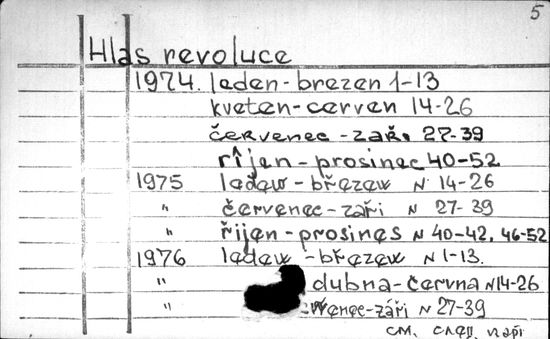 5
Hlas revoluce
1974. leden-brezen 1-13
kveten-cerven 14-26
červenec-zaři 27-39
řijen-prosinec 40-52
1975 leden-březen N 14-26
" červenec-záři N 27-39
" řijen-prosines N 40-42, 46-52
1976 leden-březen N 1-13.
" dubna-června N 14-26
" venec-záři N 27-39
см.